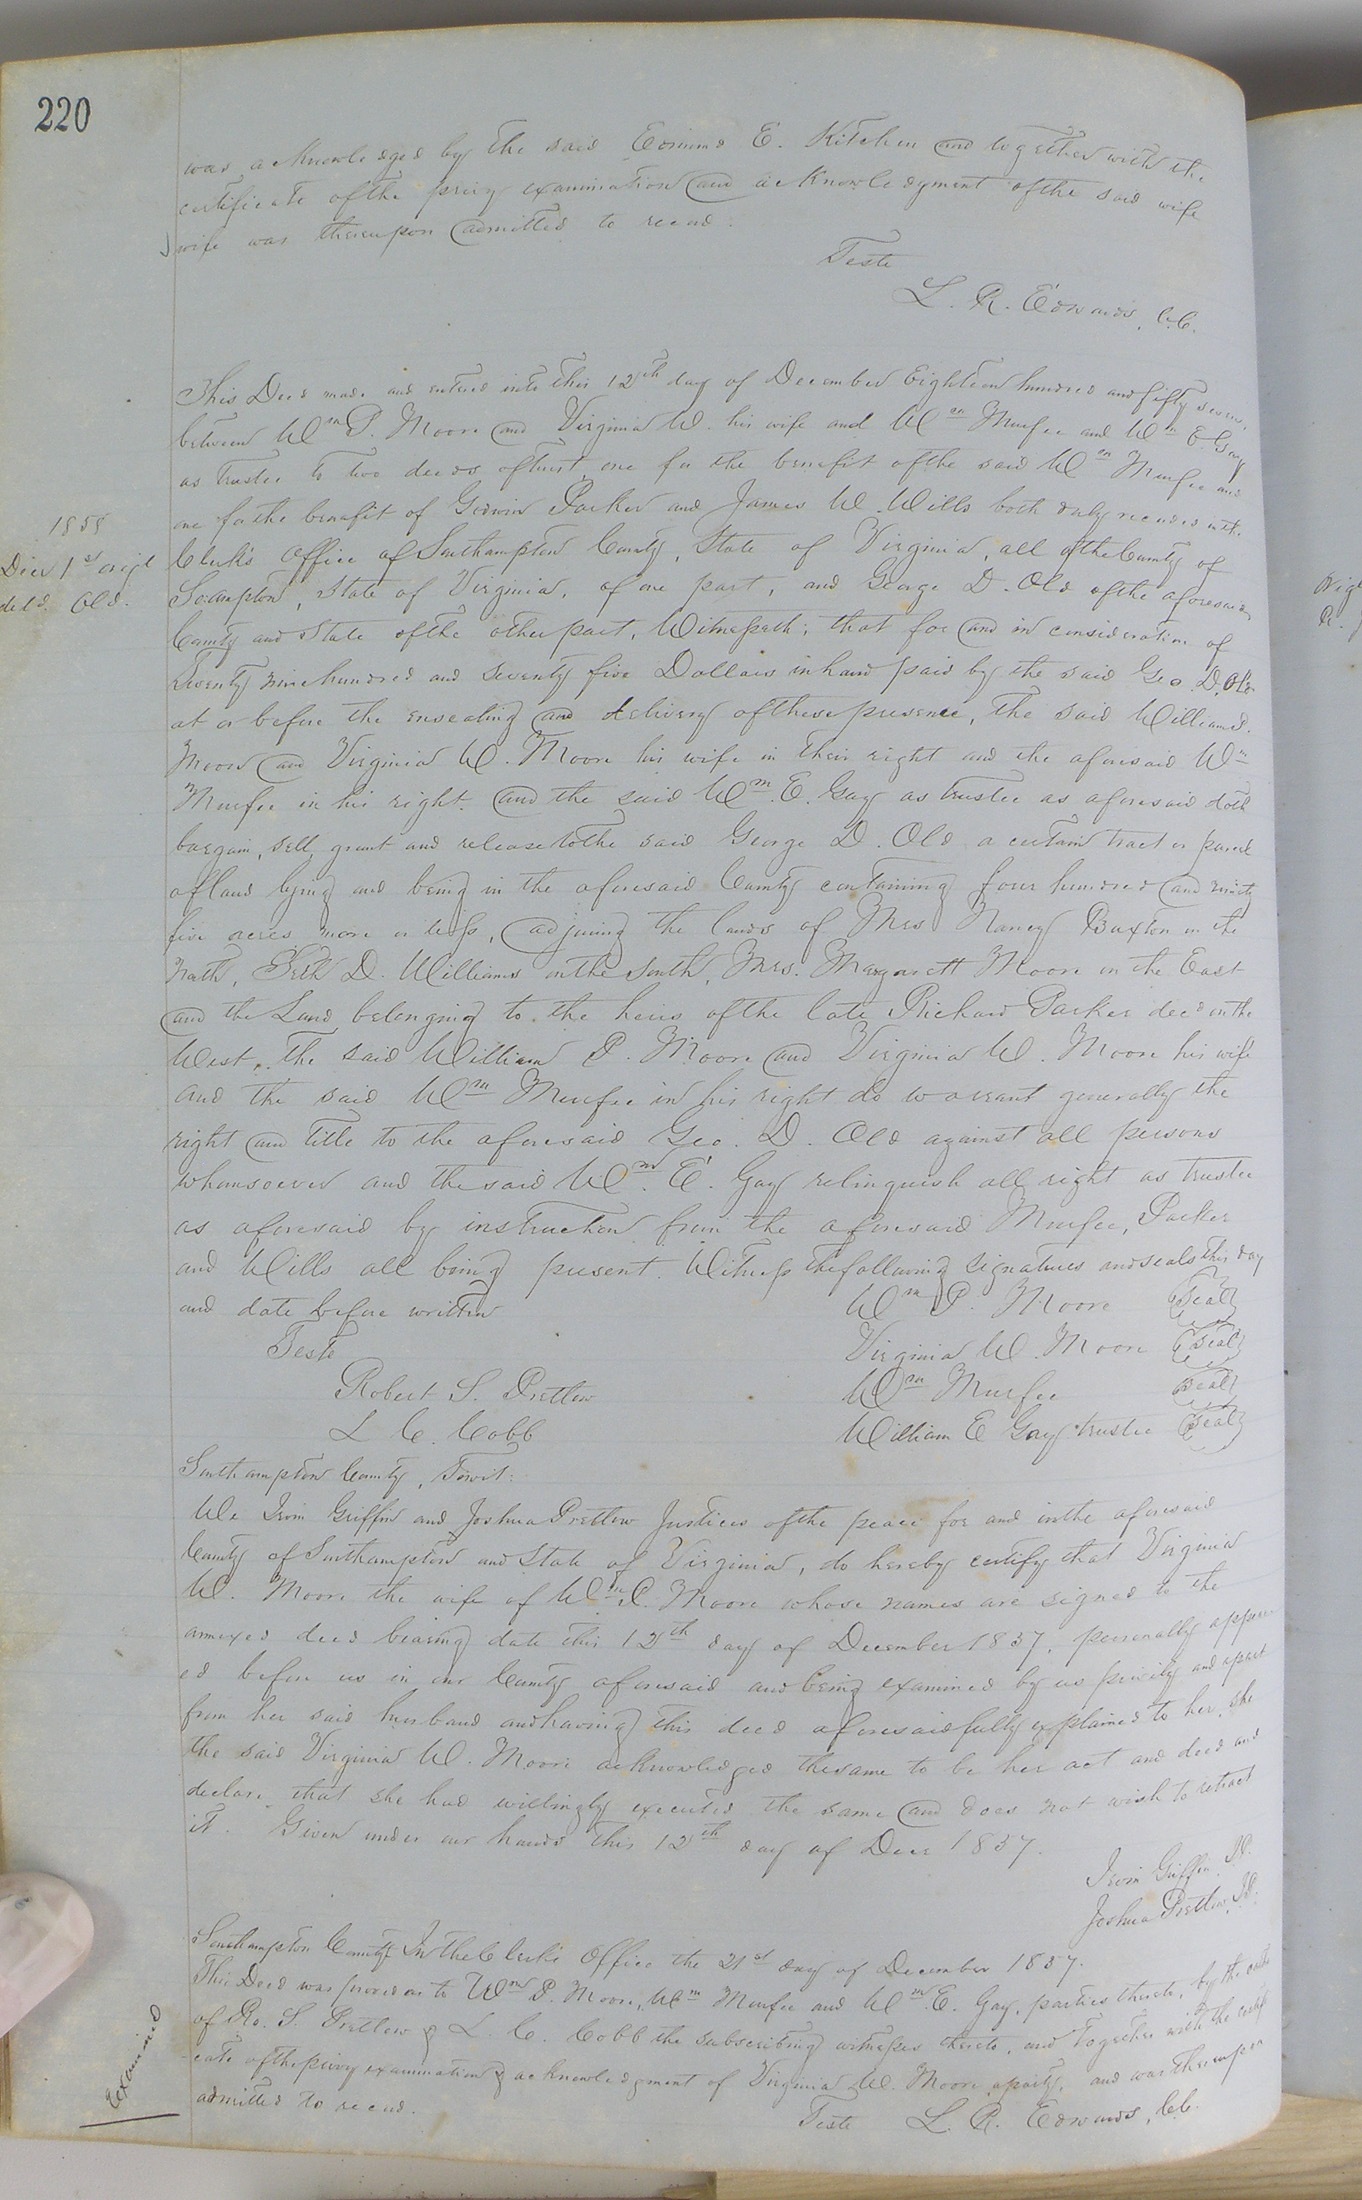 220
was acknowledged by the said Edmund E. Kitchen and together with the
certificate of the privy examination and acknowledgment of the said wife
wife was thereupon admitted to record.
Teste
L. R. Edwards, C.C.
This Deed made and entered into this 12th day of December Eighteen hundred and fifty seven,
between Wm P. Moore and Virginia W. his wife and Wm Murfee and Wm E. Gay
as trustee to two deeds of trust one for the benefit of the said Wm Murfee and
one for the benefit of Godwin Parker and James W. Wills both duly recorded in the
1858
Clerk's Office of Southampton County, State of Virginia, all of the County of
Decr 1st origl
deld. Old.
Soampton, State of Virginia, of one part, and George D. Old of the aforesaid
County and State of the other part, Witnesseth; that for and in consideration of
Twenty nine hundred and seventy five Dollars in hand paid by the said Geo. D. Old
at or before the ensealing and delivery of these presence, the said William P.
Moore and Virginia W. Moore his wife in their right and the aforesaid Wm
Murfee in his right and the said Wm. E. Gay as trustee as aforesaid doth
bargain, sell, grant and release to the said George D. Old a certain tract or parcel
of land lying and being in the aforesaid County containing four hundred and ninety
five acres more or less, adjoining the lands of Mrs Nancy Buxton on the
North, Seth D. Williams on the South, Mrs. Margarett Moore on the East
and the Land belonging to the heirs of the late Richard Parker decd on the
West. The said William P. Moore and Virginia W. Moore his wife
and the said Wm Murfee in his right do warrant generally the
right and title to the aforesaid Geo. D. Old against all persons
whomsoever and the said Wm. E. Gay relinquish all right as trustee
as aforesaid by instruction from the aforesaid Murfee, Parker
and Wills all being present. Witness the following signatures and seals this day
and date before written
Wm P. Moore (Seal)
Teste
Virginia W. Moore (Seal)
Robert S. Pretlow
Wm Murfee (Seal)
L. C. Cobb
William E Gay trustee (Seal)
Southampton County, Towit:
We Irvin Griffin and Joshua Pretlow Justices of the peace for and in the aforesaid
County of Southampton and State of Virginia, do hereby certify that Virginia
W. Moore the wife of Wm P. Moore whose names are signed to the
annexed deed bearing date this 12th day of December 1857, personally appear
ed before us in our County aforesaid and being examined by us privily and apart
from her said husband and having this deed aforesaid fully explained to her, she
the said Virginia W. Moore acknowledged the same to be her act and deed and
declare that she had willingly executed the same and does not wish to retract
it. Given under our hands this 12th day of Decr 1857.
Irvin Griffin J.P.
Joshua Pretlow, J.P.
Southampton County In the Clerk's Office the 21st day of December 1857.
This Deed was proved as to Wm P. Moore, Wm Murfee and Wm E. Gay, parties thereto, by the oaths
of Ro. S. Pretlow & L. C. Cobb the subscribing witnesses thereto, and together with the certifi
cate of the privy examination & acknowledgment of Virginia W. Moore, a party, and was thereupon
admitted to record.
Teste L. R. Edwards, C.C.
Examined